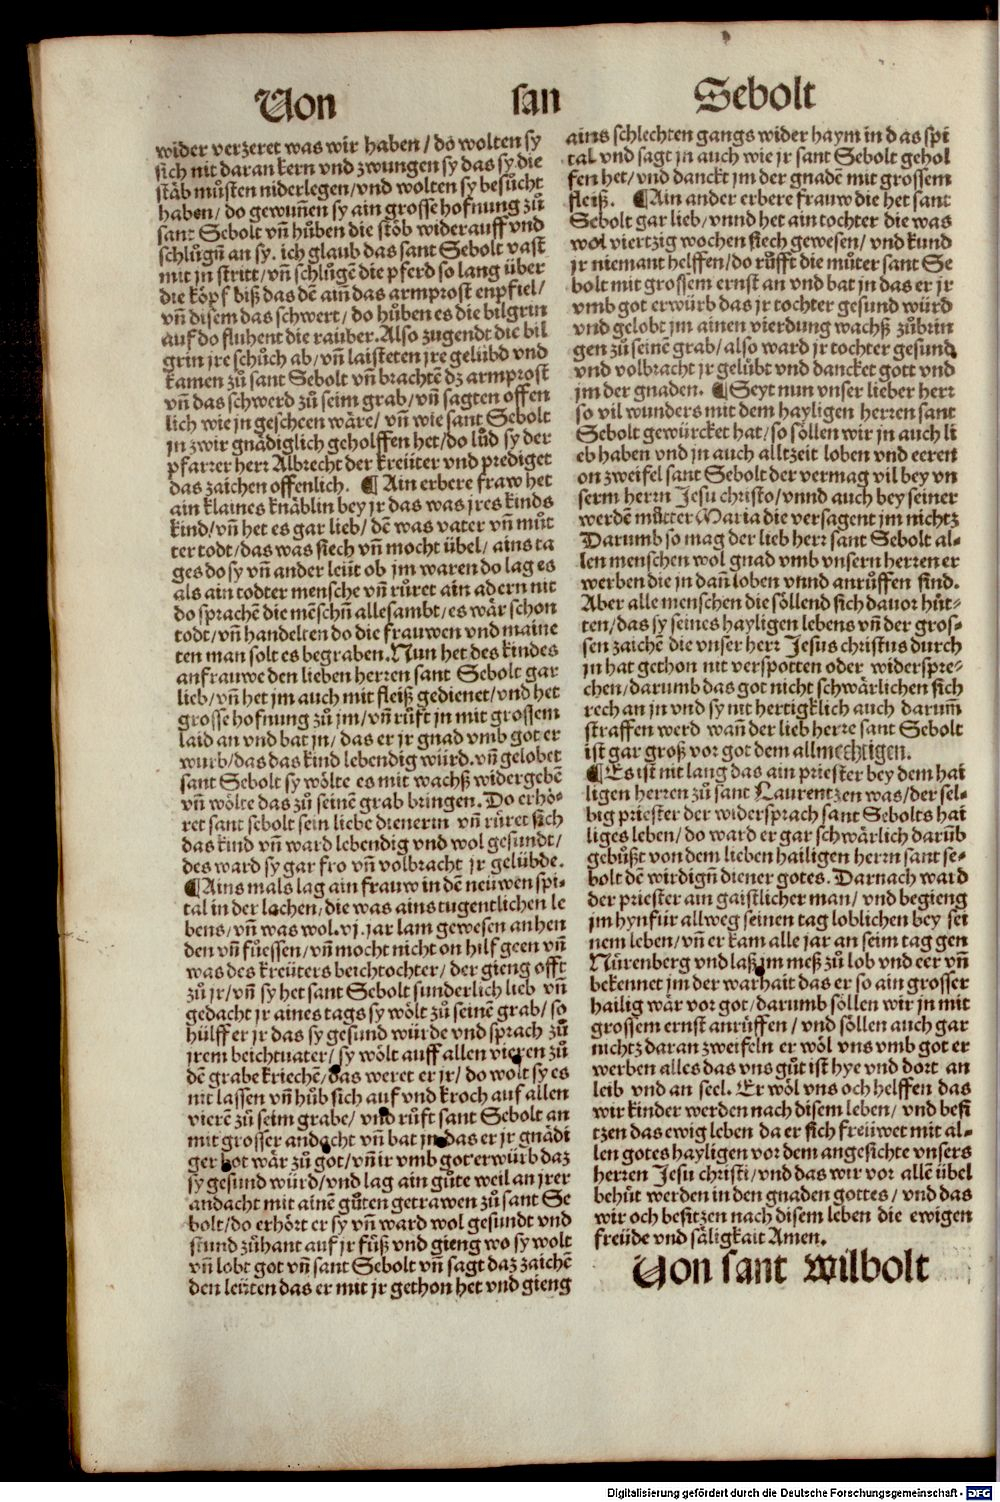 Von san Sebolt
wider verzeret was wir haben / do wolten sy
sich nit daran kern vnd zwungen sy das sy die
stäb můsten niderlegen / vnd wolten sy besůcht
haben / do gewuñen sy ain grosse hofnung zů
sant Sebolt vñ hůben die stöb widerauff vnd
schlůgñ an sy. ich glaub das sant Sebolt vast
mit jn stritt / vñ schlůgē die pferd so lang über
die köpf biß das dē ainē das armprost enpfiel /
vñ disem das schwert / do hůben es die bilgrin
auf do fluhent die rauber. Also zugendt die bil
grin jre schůch ab / vñ laisteten jre gelübd vnd
kamen zů sant Sebolt vñ brachtē dz armprost
vñ das schwerd zů seim grab / vñ sagten offen
lich wie jn gescheen wäre / vñ wie sant Sebolt
jn zwir gnädiglich geholffen het / do lůd sy der
pfarrer herr Albrecht der kreüter vnd prediget
das zaichen offenlich. ¶ Ain erbere fraw het
ain klaines knäblin bey jr das was jres kinds
kind / vñ het es gar lieb / dē was vater vñ můt
ter todt / das was siech vñ mocht übel / ains ta
ges do sy vñ ander leüt ob jm waren do lag es
als ain todter mensche vñ růret ain adern nit
do sprachē die mēschñ allesambt / es wär schon
todt / vñ handelten do die frauwen vnd maine
ten man solt es begraben. Nun het des kindes
anfrauwe den lieben herren sant Sebolt gar
lieb / vñ het jm auch mit fleiß gedienet / vnd het
grosse hofnung zů jm / vñ růft jn mit grossem
laid an vnd bat jn / das er jr gnad vmb got er
wurb / das das kind lebendig würd. vñ gelobet
sant Sebolt sy wölte es mit wachß widergebē
vñ wölte das zů seinē grab bringen. Do erhö-
ret sant sebolt sein liebe dienerin vñ růret sich
das kind vñ ward lebendig vnd wol gesundt /
des ward sy gar fro vñ volbracht jr gelübde.
¶ Ains mals lag ain frauw in dē neüwen spi-
tal in der lachen / die was ains tugentlichen le
bens / vñ was wol. vj. jar lam gewesen an hen
den vñ füessen / vñ mocht nicht on hilf geen vñ
was des kreüters beichtochter / der gieng offt
zů jr / vñ sy het sant Sebolt sunderlich lieb vñ
gedacht jr aines tags sy wölt zů seinē grab / so
hülff er jr das sy gesund würde vnd sprach zů
jrem beichtuater / sy wölt auff allen vieren zů
dē grabe kriechē / das weret er jr / do wolt sy es
nit lassen vñ hůb sich auf vnd kroch auf allen
vierē zů seim grabe / vnd růft sant Sebolt an
mit grosser andacht vñ bat jn das er jr gnädi
ger bot wär zů got / vñ ir vmb got erwürb daz
sy gesund würd / vnd lag ain gůte weil an jrer
andacht mit ainē gůten getrawen zů sant Se
bolt / do erhört er sy vñ ward wol gesundt vnd
stund zůhant auf jr füß vnd gieng wo sy wolt
vñ lobt got vñ sant Sebolt vñ sagt daz zaichē
den leüten das er mit jr gethon het vnd gieng
ains schlechten gangs wider haym in das spi
tal vnd sagt jn auch wie jr sant Sebolt gehol
fen het / vnd danckt jm der gnadē mit grossem
fleiß. ¶ Ain ander erbere frauw die het sant
Sebolt gar lieb / vnnd het ain tochter die was
wol viertzig wochen siech gewesen / vnd kund
jr niemant helffen / do růfft die můter sant Se
bolt mit grossem ernst an vnd bat jn das er jr
vmb got erwürb das jr tochter gesund würd
vnd gelobt jm ainen vierdung wachß zůbrin
gen zů seinē grab / also ward jr tochter gesund
vnd volbracht jr gelübt vnd dancket gott vnd
jm der gnaden. ¶ Seyt nun vnser lieber herr
so vil wunders mit dem hayligen herren sant
Sebolt gewürcket hat / so söllen wir jn auch li
eb haben vnd jn auch alltzeit loben vnd eeren
on zweifel sant Sebolt der vermag vil bey vn
serm herrn Jesu christo / vnnd auch bey seiner
werdē můtter Maria die versagent jm nichtz
Darumb so mag der lieb herr sant Sebolt al-
len menschen wol gnad vmb vnsern herren er
werben die jn dañ loben vnnd anrůffen sind.
Aber alle menschen die söllend sich dauor hüt-
ten / das sy seines hayligen lebens vñ der gros-
sen zaichē die vnser herr Jesus christus durch
jn hat gethon nit verspotten oder widerspre-
chen / darumb das got nicht schwärlichen sich
rech an jn vnd sy nit hertigklich auch darum̄
straffen werd wañ der lieb herre sant Sebolt
ist gar groß vor got dem allmechtigen.
¶ Es ist nit lang das ain priester bey dem hai
ligen herren zů sant Laurentzen was / der sel-
big priester der widersprach sant Sebolts hai
liges leben / do ward er gar schwärlich darūb
gebüßt von dem lieben hailigen herrn sant se-
bolt dē wirdigñ diener gotes. Darnach ward
der priester ain gaistlicher man / vnd begieng
jm hynfür allweg seinen tag loblichen bey sei
nem leben / vñ er kam alle jar an seim tag gen
Nürenberg vnd laß jm meß zů lob vnd eer vñ
bekennet jm der warhait das er so ain grosser
hailig wär vor got / darumb söllen wir jn mit
grossem ernst anrůffen / vnd söllen auch gar
nichtz daran zweifeln er wöl vns vmb got er
werben alles das vns gůt ist hye vnd dort an
leib vnd an seel. Er wöl vns och helffen das
wir kinder werden nach disem leben / vnd besi
tzen das ewig leben da er sich freüwet mit al-
len gotes hayligen vor dem angesichte vnsers
herren Jesu christi / vnd das wir vor allē übel
behüt werden in den gnaden gottes / vnd das
wir och besitzen nach disem leben die ewigen
freüde vnd säligkait Amen.
Von sant wilbolt
Digitalisierung gefördert durch die Deutsche Forschungsgemeinschaft - DFG